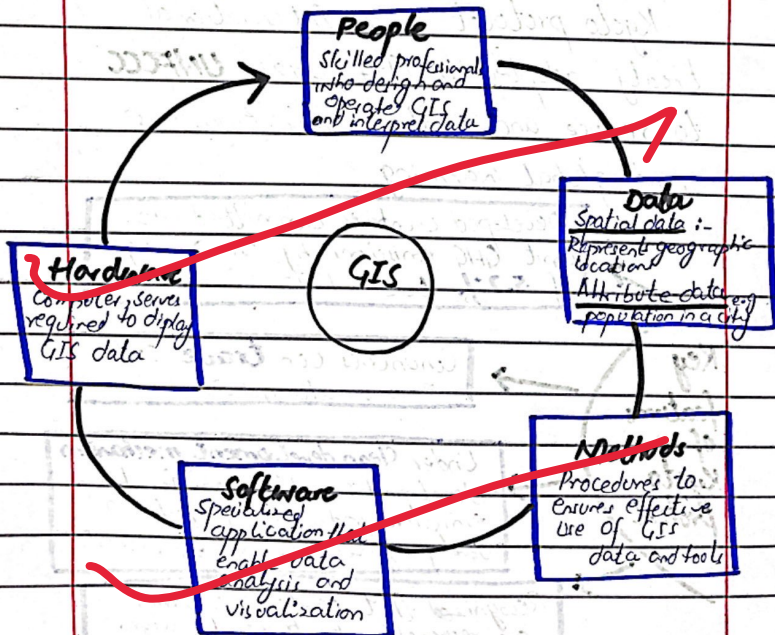 People
Skilled professionals
who design and
operate GIS
and interpret data
Data
Spatial data :-
Represents geographic
locations
Attribute data e.g
population in a city
GIS
Hardware
Computer, serves
required to display
GIS data
Methods
Procedures to
ensures effective
use of GIS
data and tools
Software
Specialized
application that
enable data
analysis and
visualization